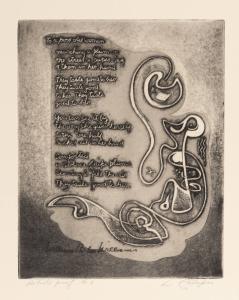 To a poor old woman
munching a plum on
the street a paper bag
of them in her hand
They taste good to her
They taste good
to her. They taste
good to her
You can see it by
the way she gives herself
to the one half
sucked out in her hand
Comforted
a solace of ripe plums
seeming to fill the air
They taste good to her
William Carlos Williams
Artist's proof